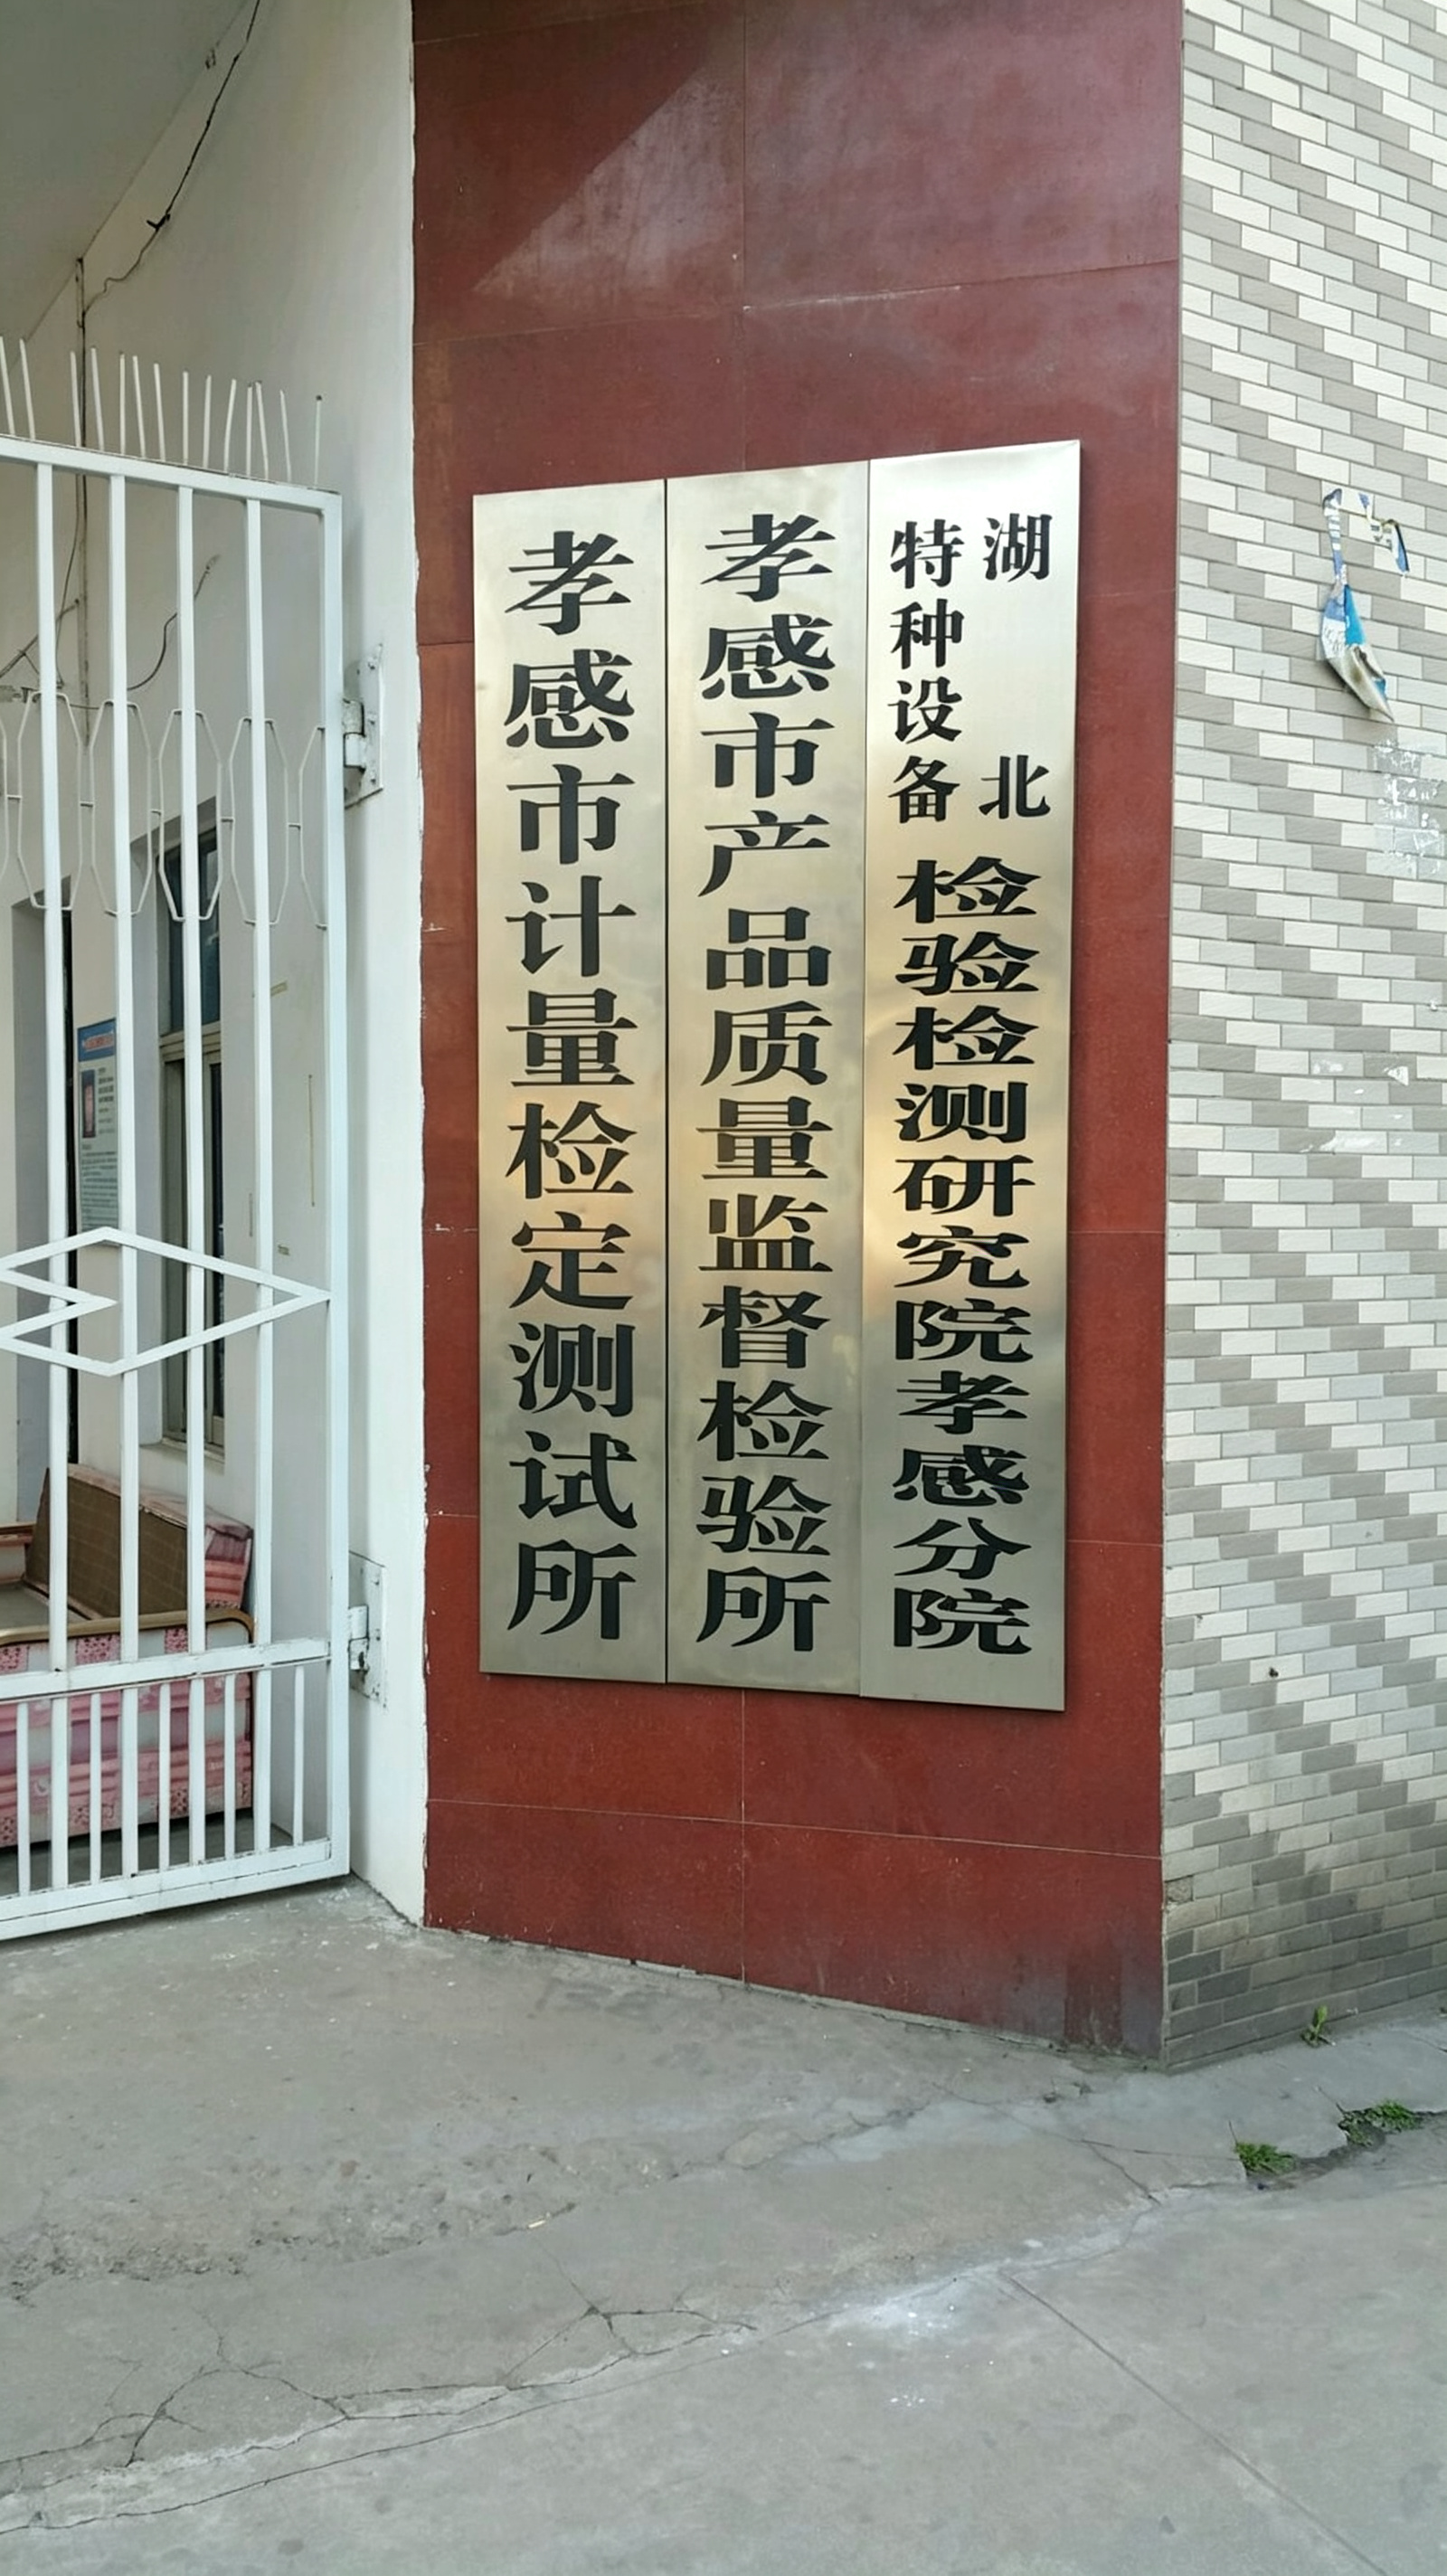 湖北
特种设备
检验检测研究院孝感分院
孝感市产品质量监督检验所
孝感市计量检定测试所